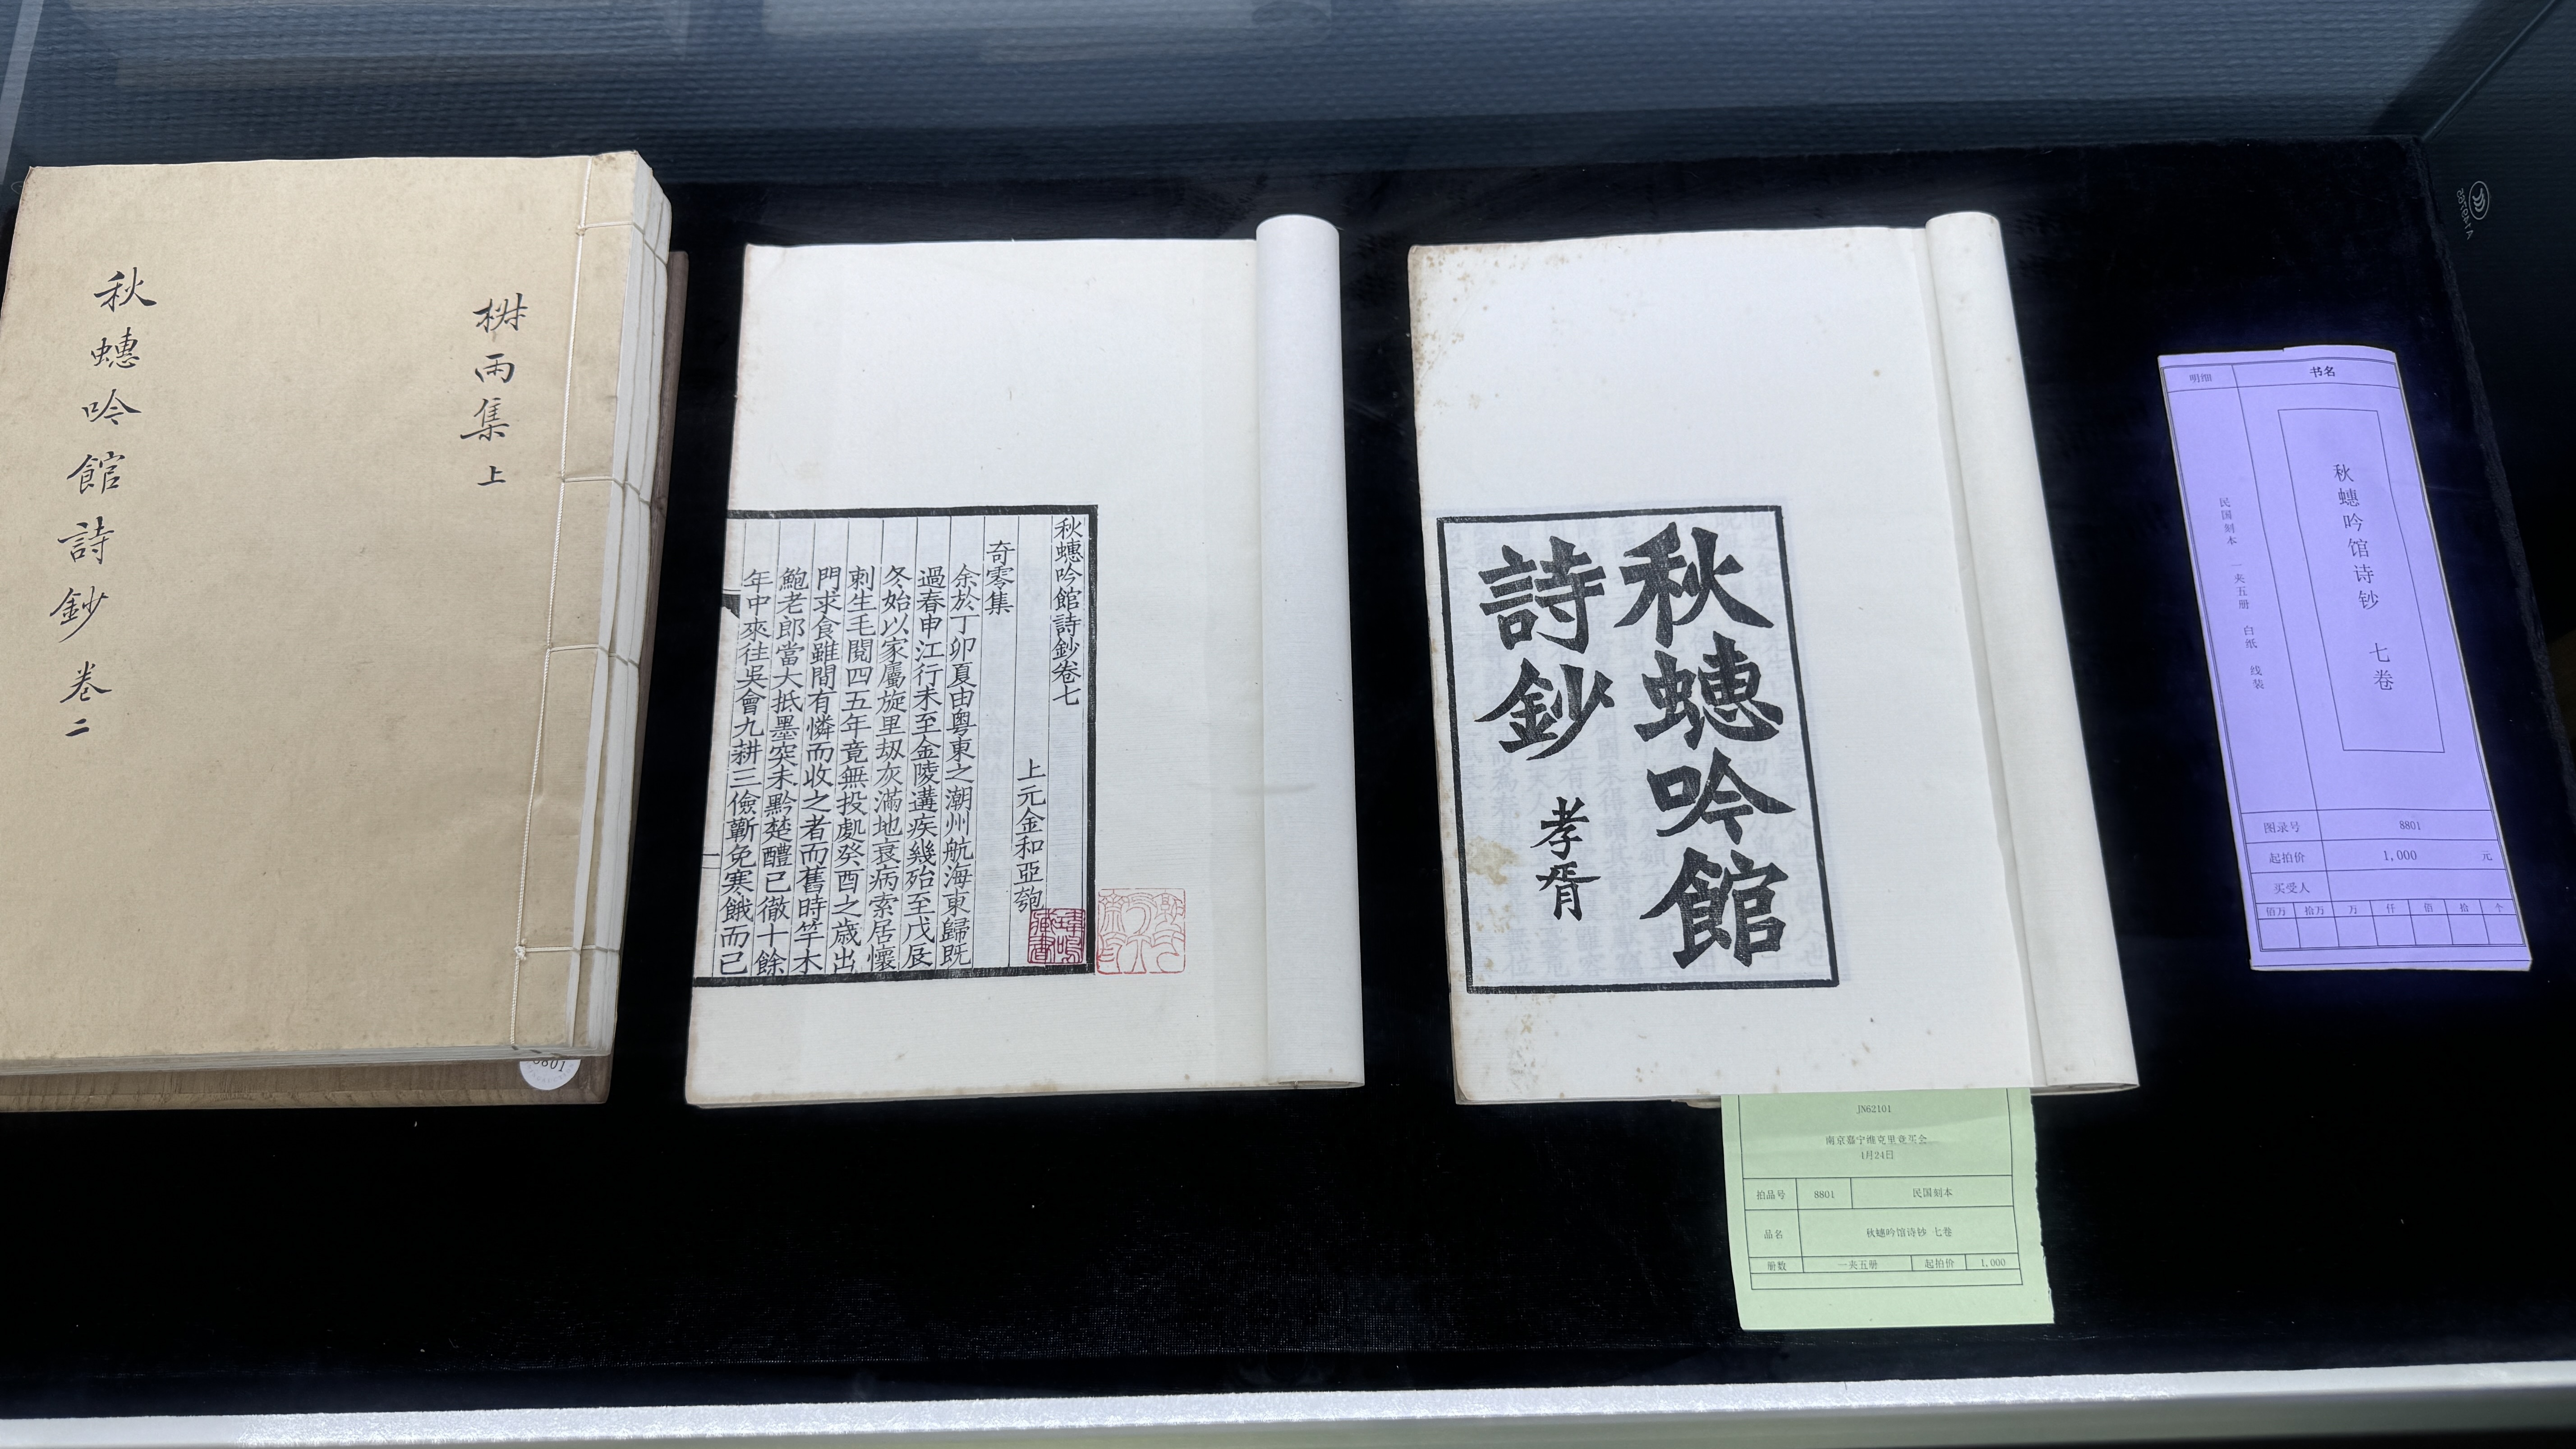 秋蟪吟館詩鈔 卷二
集 上
雨
秋蟪吟館詩鈔卷七
上元金和亞匏
奇零集
余於丁卯夏由粵東之潮州航海東歸既
過春申江行未至金陵遘疾幾殆至戊辰
冬始以家屬旋里刼灰滿地衰病索居懷
刺生毛閱四五年竟無投處癸酉之歲出
門求食雖間有憐而收之者而舊時竿木
鮑老郎當大抵墨突未黔楚醴已徹十餘
年中來往吳會九耕三儉蘄免寒餓而已
藏書
秋蟪吟館
詩鈔
孝胥
明细
书名
秋蟪吟馆诗钞 七卷
民国刻本 一夹五册 白纸 线装
图录号 8801
起拍价 1,000 元
买受人
佰万 拾万 万 仟 佰 拾 个
8801
JN62101
南京嘉宁维克里竞买会
1月24日
拍品号 8801 民国刻本
品名 秋蟪吟馆诗钞 七卷
册数 一夹五册 起拍价 1,000